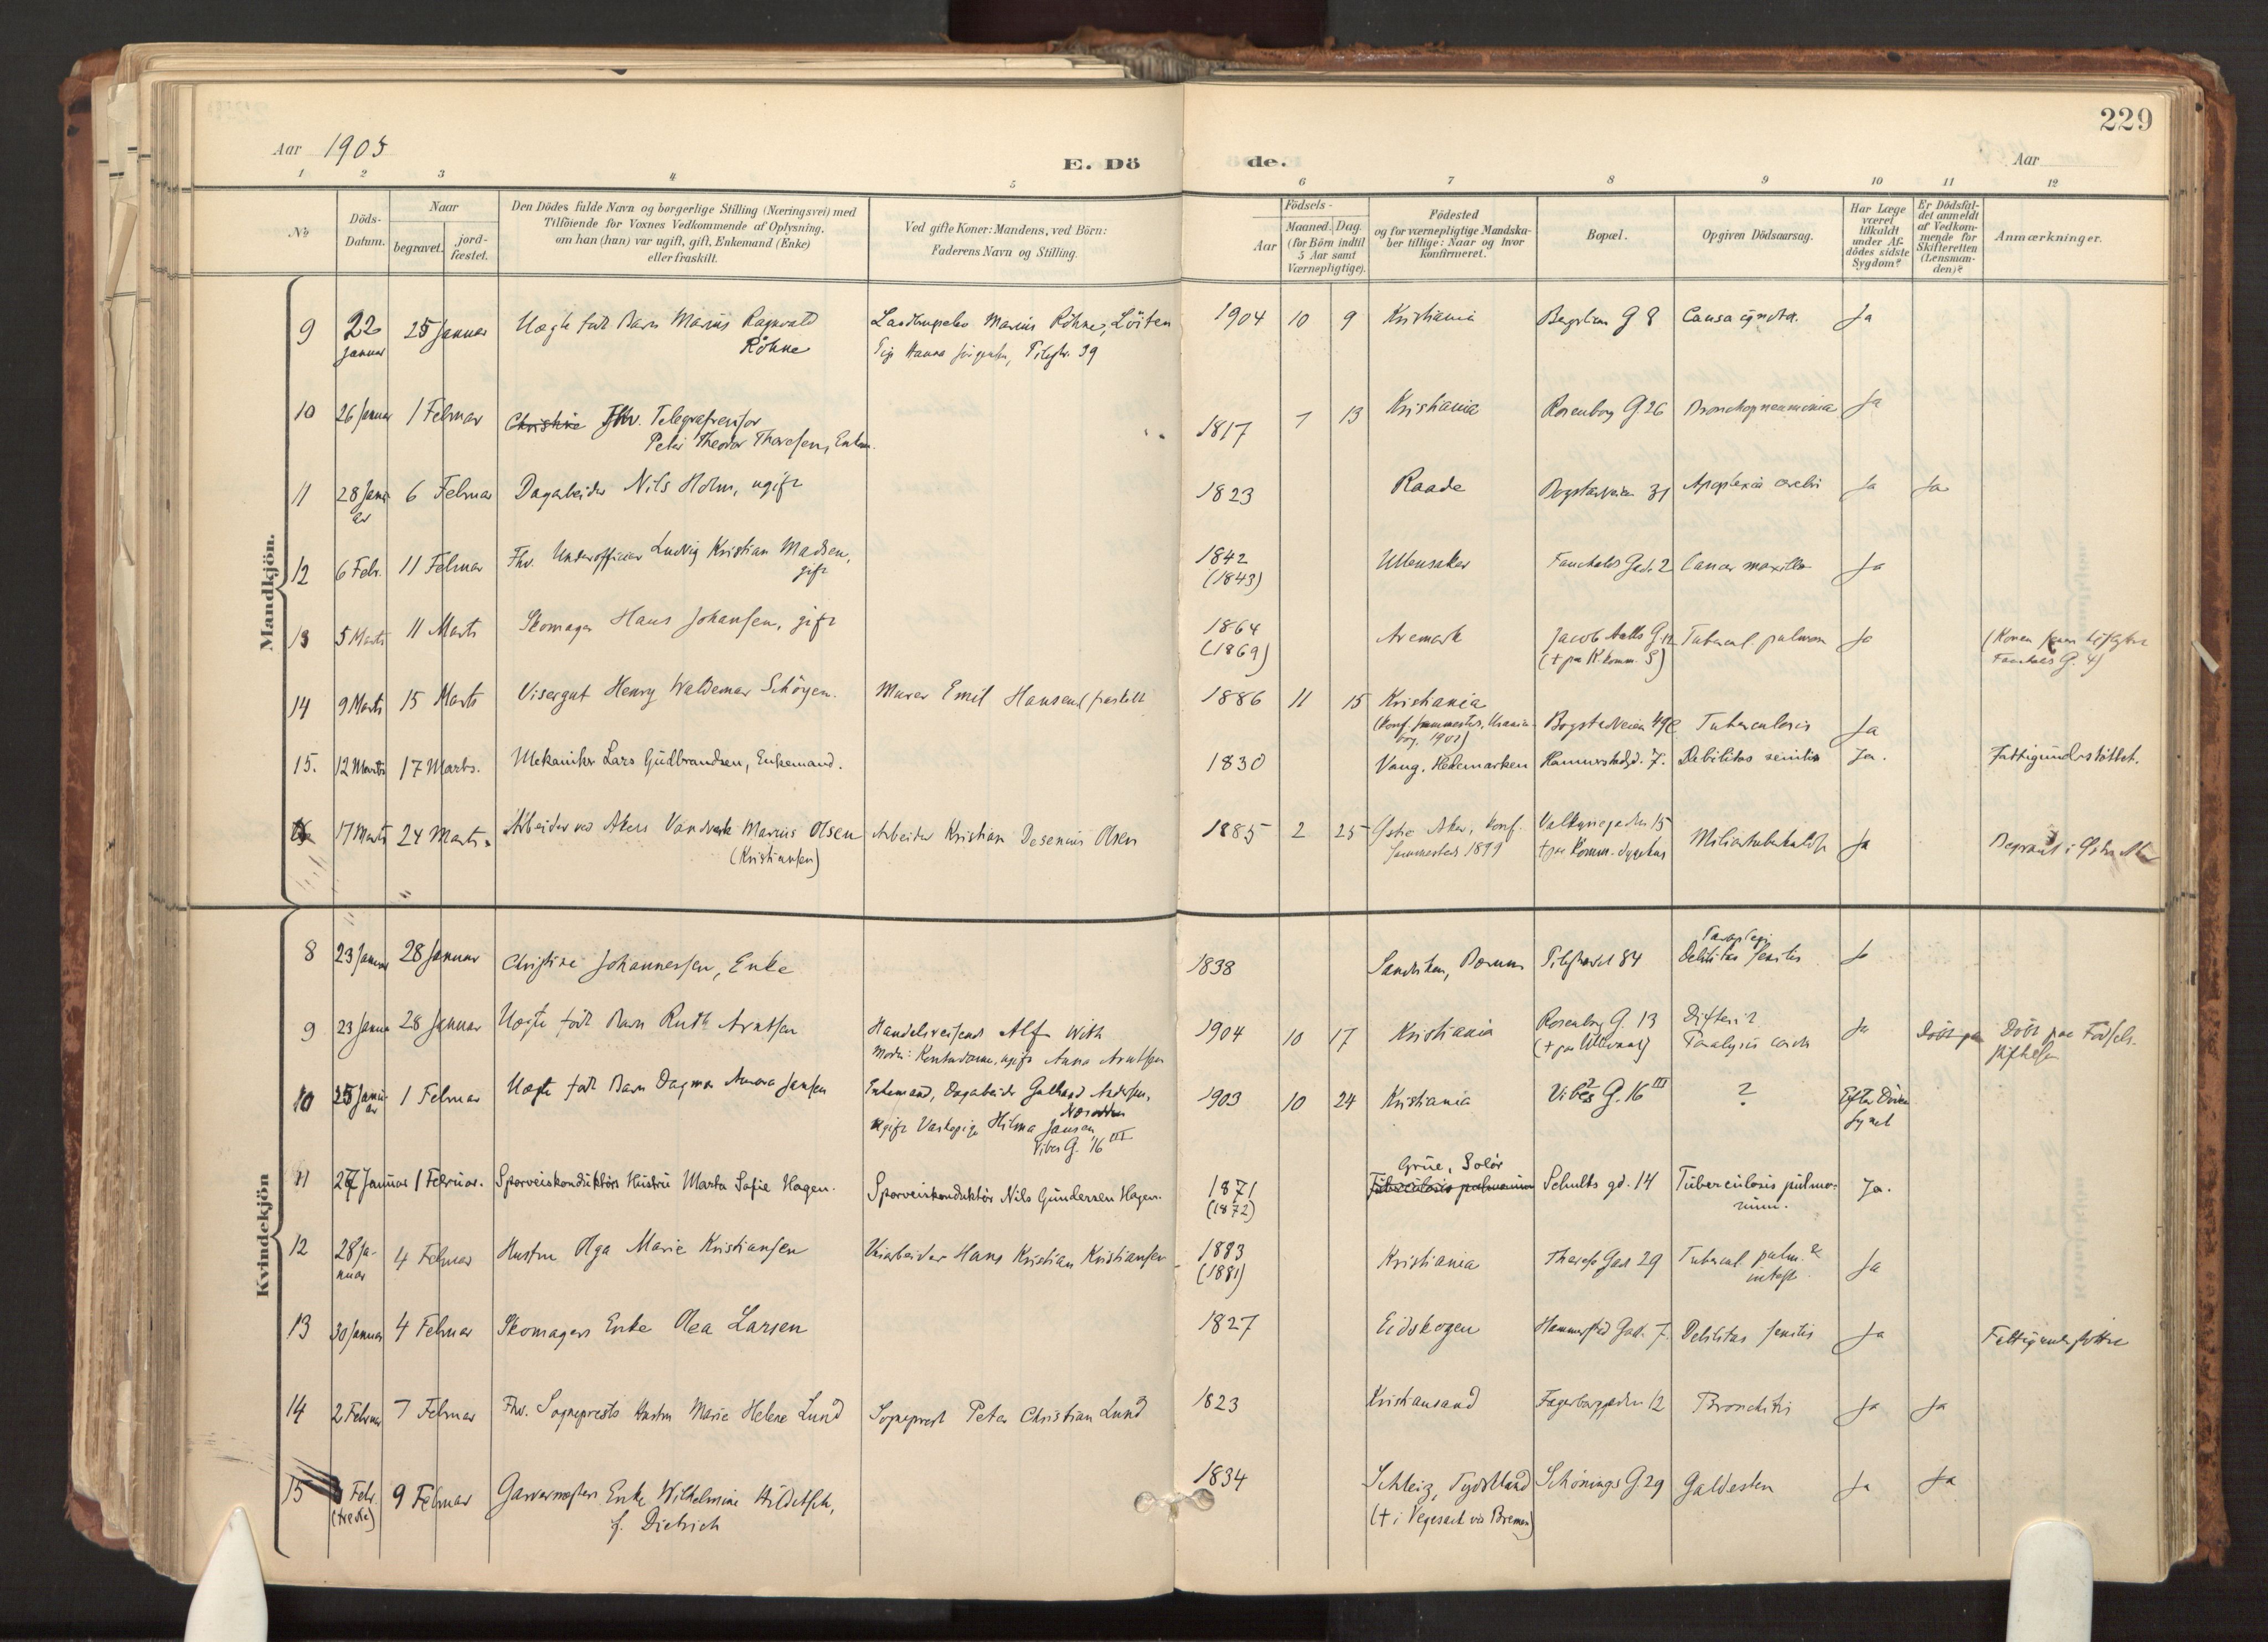 229
Aar 1905
E. Döde.
Aar
1 2 3 4 5 6 7 8 9 10 11 12
No
Döds-Datum.
Naar
begravet.
jord-fæstet.
Den Dödes fulde Navn og borgerlige Stilling (Næringsvei) med
Tilföiende for Voxnes Vedkommende af Oplysning,
om han (hun) var ugift, gift, Enkemand (Enke)
eller fraskilt.
Ved gifte Koner: Mandens, ved Börn:
Faderens Navn og Stilling.
Födsels-
Aar
Maaned. Dag.
(for Börn indtil
5 Aar samt
Værnepligtige).
Födested
og for værnepligtige Mandska-
ber tillige: Naar og hvor
konfirmeret.
Bopæl.
Opgiven Dödsaarsag.
Har Læge
været
tilkaldt
under Af-
dödes sidste
Sygdom?
Er Dödsfal-
det anmeldt
af Vedkom-
mende for
Skifteretten
(Lensman-
den)?
Anmærkninger.
Mandkjön.
9 22 Januar 25 Januar Uægte født Barn Marius Ragnvald Röhne Marius Röhne, Löiten 1904 10 9 Kristiania G 8 Causa ignota. Ja
Pige Hanna Jörgensen, Pilestr. 39
10 26 Januar 1 Februar Christine Fhv. Telegrafrevisor 1817 7 13 Kristiania Rosenborg G. 26 Bronchopneumonia Ja
Peter Theodor Thoresen, Enkem.
11 28 Januar 6 Februar Dagarbeider Nils Holm, ugift 1823 Raade Bogstadveien 31 Apoplexia cerebri Ja Ja
12 6 Febr. 11 Februar Fhv. Underofficier Ludvig Kristian Madsen, gift 1842 (1843) Ullensaker Fauchalds Gade 2 Cancer maxillæ Ja
13 5 Marts 11 Marts Skomager Hans Johansen, gift 1864 (1869) Aremark Jacob Aalls G. 12 (+ paa K. komm. S) Tubercul. pulmon Ja (Konen
Fauchalds G. 4)
14 9 Marts 15 Marts Visergut Henry Waldemar Schöyen. Murer Emil Hansen, fraskilt 1886 11 15 Kristiania
(Konf. 1902) Bogstadveien 49 Tuberculosis Ja
15. 12 Marts 17 Marts. Mekaniker Lars Gudbrandsen, Enkemand. 1830 Vang, Hedemarken Hammerstadgd. 7. Debilitas senilis Ja. Fattigunderstöttet.
17 Marts 24 Marts. Arbeider ved Akers Vandverk Marius Olsen (Kristiansen) Arbeider Kristian Desenius Olsen 1885 2 25 Østre Aker, Konf. Valkyriegaden 15
1899 + paa Komm. Sygehus Miliærtuberkulose Ja Begravet i Østre Aker
Kvindekjön
8 23 Januar 28 Januar Christine Johannessen, Enke 1838 Sandviken, Bærum Pilestrædet 84 Paraplegi
Debilitas senilis Ja
9 23 Januar 28 Januar Uægte født Barn Ruth Arntsen Handelsreisende Alf With 1904 10 17 Kristiania Rosenborg G. 13 (+ paa Ullevaal) Difterit
Paralysis cordis Ja Döbt paa Döbt paa Fødsels-
stiftelsen
Moder: Kontordame, ugift Anna Arntsen
10 25 Januar 1 Februar Uægte født Barn Dagmar Aurora Jansen Enkemand, Dagarbeider Gulbrand Andersen, Næsodden 1903 10 24 Kristiania Vibes G. 16 III ? Efter Döden
Synet
ugift Vaskepige Hilma Jansen
Vibes G. 16 III
11 27 Januar 1 Februar. Sporveiskonduktörs Hustru Marta Sofie Hagen. Sporveiskonduktör Nils Gundersen Hagen. 1871 (1872) Grue, Solör
Tuberculosis pulmonum Schults gd. 14 Tuberculosis pulmo-
num. Ja.
12 28 Januar 4 Februar Hustru Olga Marie Kristiansen Veiarbeider Hans Kristian Kristiansen 1883 (1881) Kristiania Thereses Gade 29 Tubercul. pulm. &
intest. Ja
13 30 Januar 4 Februar Skomagers Enke Olea Larsen 1827 Eidskogen Hammerstad Gade 7. Debilitas senilis Ja Fattigunderstöttet
14 2 Februar 7 Februar Fhv. Sogneprests Hustru Marie Helene Lund Sogneprest Peter Christian Lund 1823 Kristiansand Fagerborggaden 12 Bronchitis Ja Ja
15 3 Febr. (tredie) 9 Februar Garvermesters Enke Wilhelmine
f. Dietrich 1834 Schleiz, Tydskland
(+ i Vegesack via Bremen) Schönings G. 29 Galdesten Ja Ja